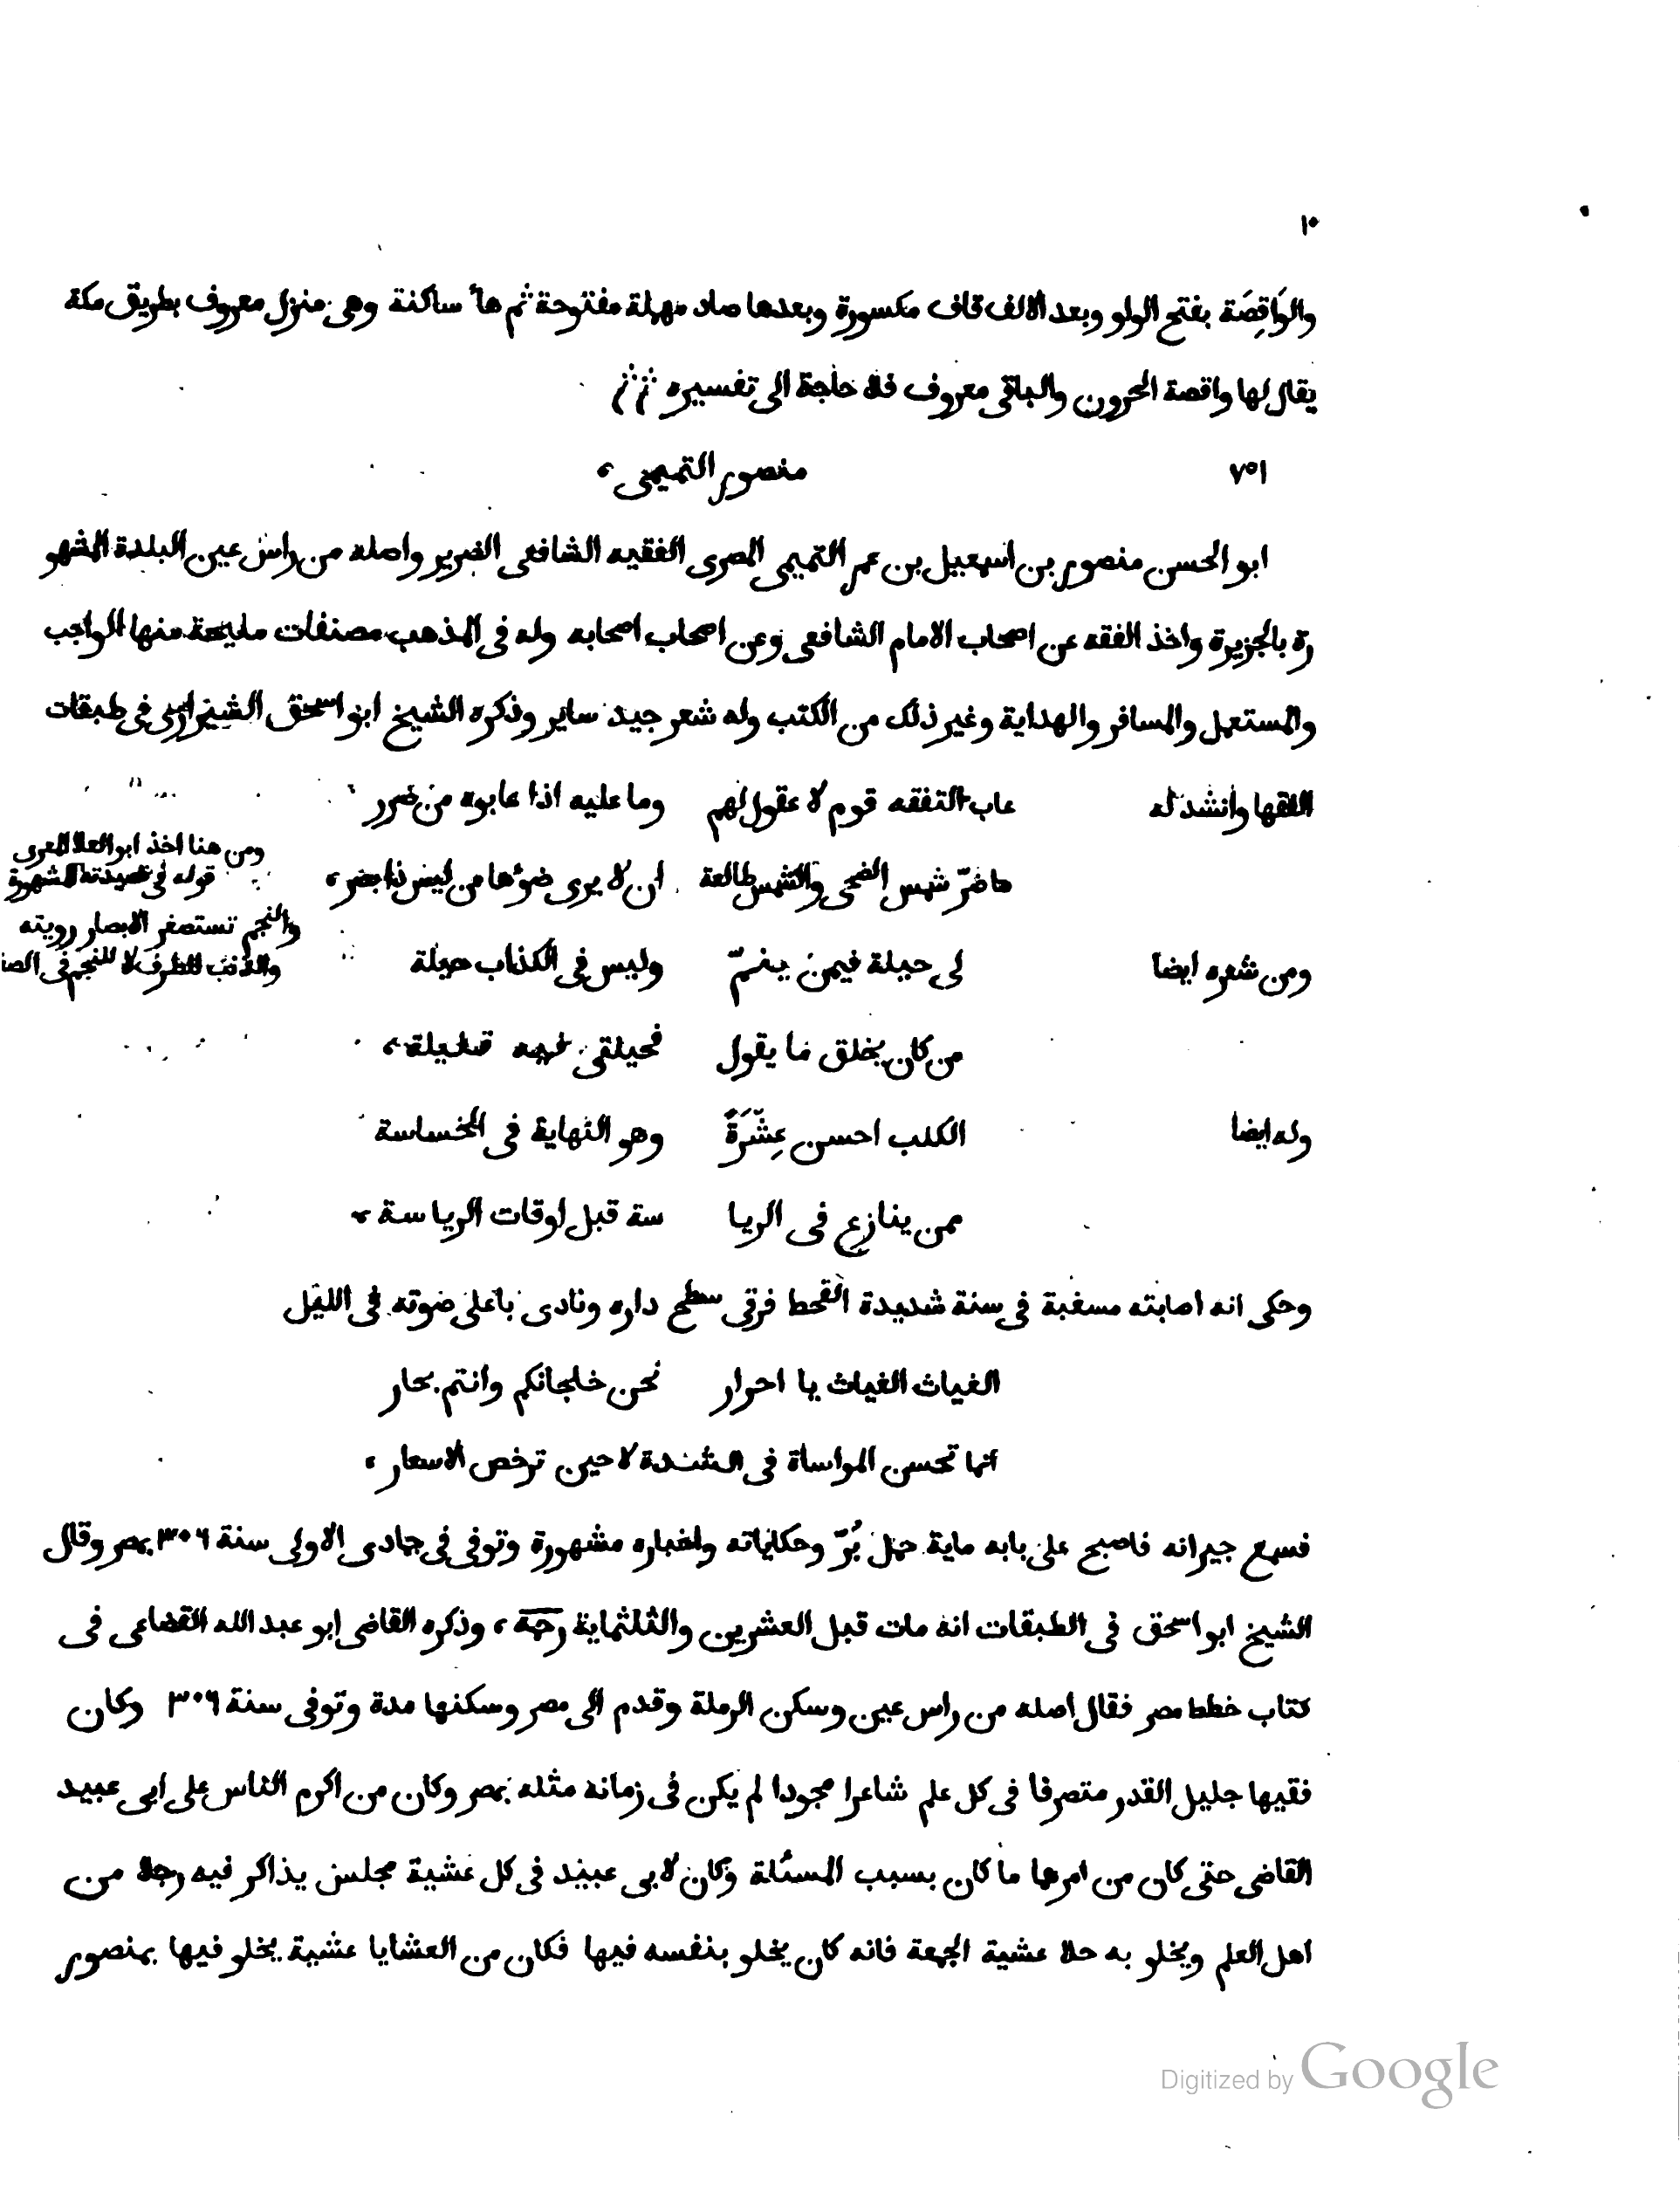 ١٠
والوَاقِصَة بفتح الواو وبعد الالف قاف مكسورة وبعدها صاد مهملة مفتوحة ثم هآ ساكنة وهى منزل معروف بطريق مكة
يقال لها واقصة الحرون والباقى معروف فلا حاجة الى تفسيره
٧٥١ منصور التميمى
ابو الحسن منصور بن اسمعيل بن عمر التميمى المصرى الفقيه الشافعى الضرير واصله من راس عين البلدة المشهو
رة بالجزيرة واخذ الفقه عن اصحاب الامام الشافعى وعن اصحاب اصحابه وله فى المذهب مصنفات مليحة منها الواجب
والمستعمل والمسافر والهداية وغير ذلك من الكتب وله شعر جيد ساير وذكره الشيخ ابو اسحق الشيرازى فى طبقات
الفقها وانشد له عاب التفقه قوم لا عقول لهم وما عليه اذا عابوه من ضرر
ما ضرّ شمس الضحى والشمس طالعة ان لا يرى ضوٴها من ليس ذا بصر
ومن هنا اخذ ابو العلا المعرى
قوله فى قصيدته المشهورة
والنجم تستصغر الابصار رويته
والذنب للطرف لا للنجم فى الصغ
ومن شعره ايضا لى حيلة فيمن ينمّ وليس فى الكذاب حيلة
من كان يخلق ما يقول فحيلتى فيه قليلة
وله ايضا الكلب احسن عِشْرَةً وهو النهاية فى الخساسة
ممن ينازع فى الريا سة قبل اوقات الرياسة
وحكى انه اصابته مسغبة فى سنة شديدة القحط فرقى سطح داره ونادى باعلى صوته فى الليل
الغياث الغياث يا احرار نحن خلجانكم وانتم بحار
انما تحسن المواساة فى الشدة لا حين ترخص الاسعار
فسمع جيرانه فاصبح على بابه ماية حمل بُرّ وحكاياته واخباره مشهورة وتوفى فى جمادى الاولى سنة ٣٠٦ بمصر وقال
الشيخ ابو اسحق فى الطبقات انه مات قبل العشرين والثلثماية رحمه وذكره القاضى ابو عبد الله القضاعى فى
كتاب خطط مصر فقال اصله من راس عين وسكن الرملة وقدم الى مصر وسكنها مدة وتوفى سنة ٣٠٦ وكان
فقيها جليل القدر متصرفا فى كل علم شاعرا مجودا لم يكن فى زمانه مثله بمصر وكان من اكرم الناس على ابى عبيد
القاضى حتى كان من امرهما ما كان بسبب المسئلة وكان لابى عبيد فى كل عشية مجلس يذاكر فيه رجلا من
اهل العلم ويخلو به خلا عشية الجمعة فانه كان يخلو بنفسه فيها فكان من العشايا عشية يخلو فيها بمنصور
Digitized by Google